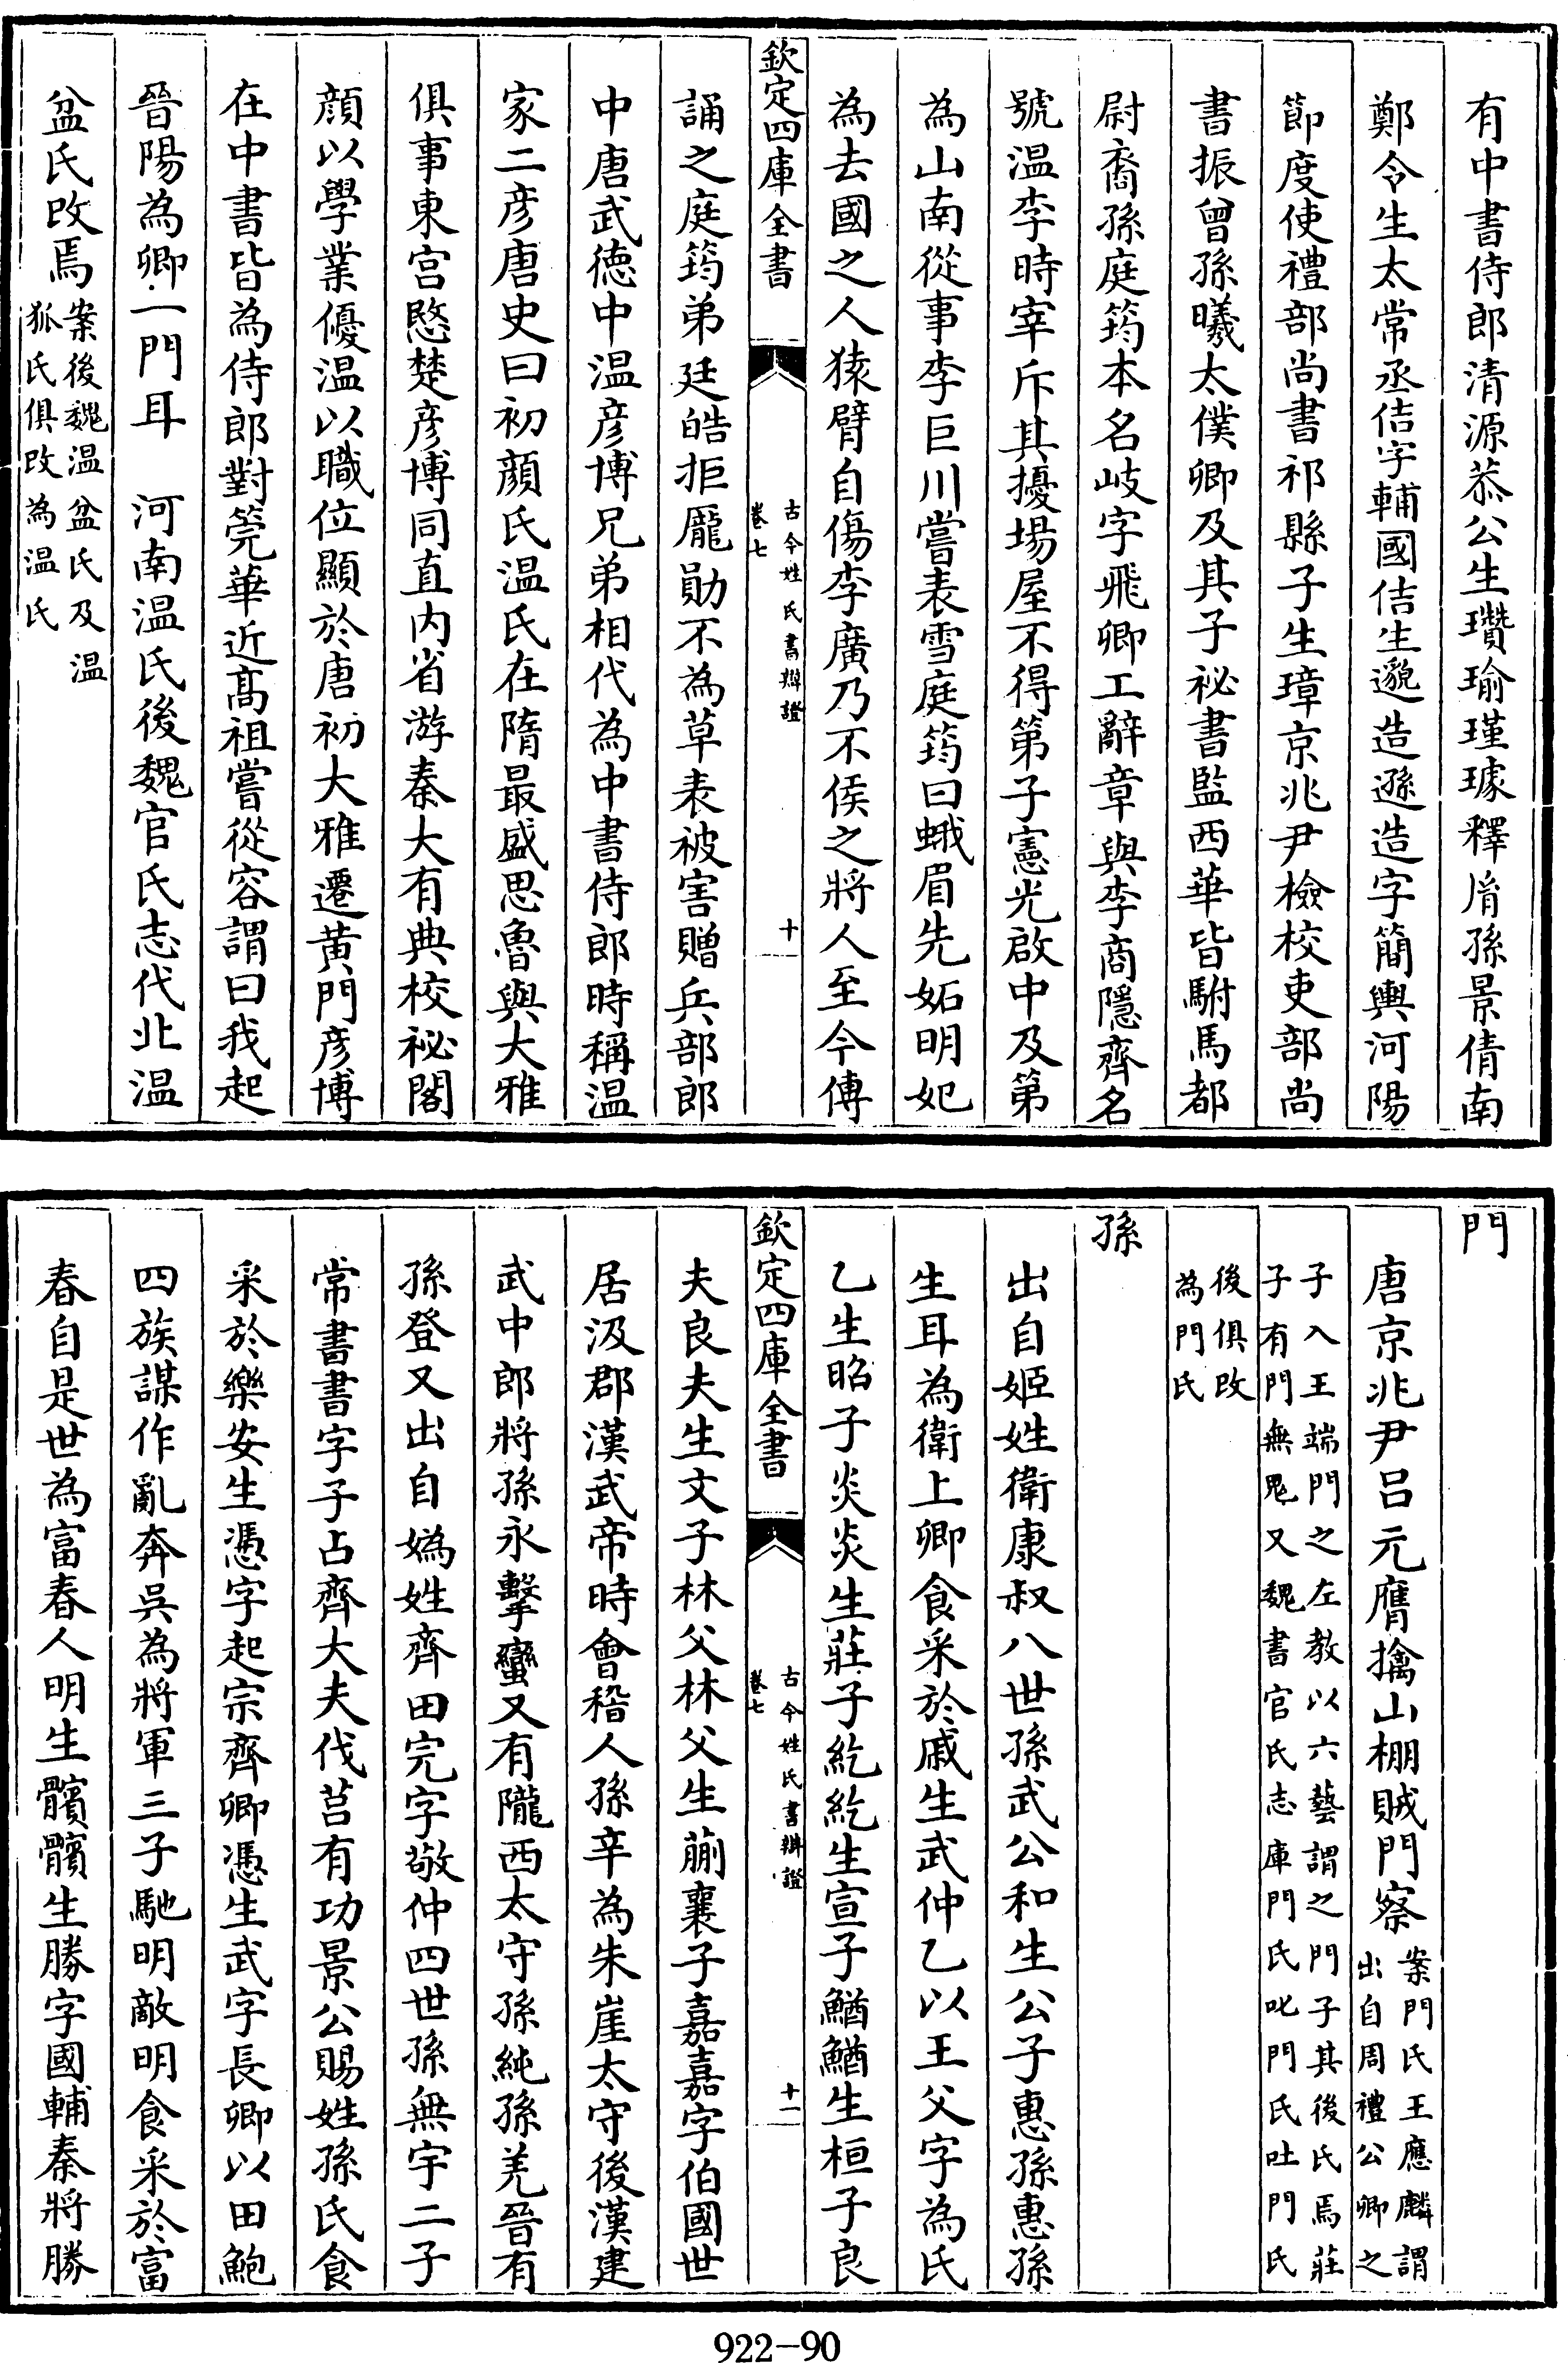 有中書侍郎清源恭公生瓚瑜瑾璩釋㣧孫景倩南
鄭令生太常丞佶字輔國佶生邈造遜造字簡輿河陽
節度使禮部尚書祁縣子生璋京兆尹檢校吏部尚
書振曾孫曦太僕卿及其子祕書監西華皆駙馬都
尉裔孫庭筠本名岐字飛卿工辭章與李商隱齊名
號温李時宰斥其擾場屋不得第子憲光啟中及第
為山南從事李巨川嘗表雪庭筠曰蛾眉先妬明妃
為去國之人猿臂自傷李廣乃不侯之將人至今傳
欽定四庫全書
古今姓氏書辯證
卷七
十
誦之庭筠弟廷皓拒龎勛不為草表被害贈兵部郎
中唐武徳中温彦博兄弟相代為中書侍郎時稱温
家二彦唐史曰初顔氏温氏在隋最盛思魯與大雅
俱事東宫愍楚彦博同直内省游秦大有典校祕閣
顔以學業優温以職位顯於唐初大雅遷黄門彦博
在中書皆為侍郎對筦華近髙祖嘗從容謂曰我起
晉陽為卿一門耳　河南温氏後魏官氏志代北温
盆氏改焉
案後魏温盆氏及温
狐氏俱改為温氏
門
唐京兆尹吕元膺擒山棚賊門察
案門氏王應麟謂
出自周禮公卿之
子入王端門之左教以六藝謂之門子其後氏焉莊
子有門無鬼又魏書官氏志庫門氏叱門氏吐門氏
後俱改
為門氏
孫
出自姬姓衛康叔八世孫武公和生公子惠孫惠孫
生耳為衛上卿食采於戚生武仲乙以王父字為氏
乙生昭子炎炎生莊子紇紇生宣子鰌鰌生桓子良
欽定四庫全書
古今姓氏書辯證
卷七
十一
夫良夫生文子林父林父生蒯襄子嘉嘉字伯國世
居汲郡漢武帝時會稽人孫辛為朱崖太守後漢建
武中郎將孫永擊蠻又有隴西太守孫純孫羌晉有
孫登又出自媯姓齊田完字敬仲四世孫無宇二子
常書書字子占齊大夫伐莒有功景公賜姓孫氏食
采於樂安生憑字起宗齊卿憑生武字長卿以田鮑
四族謀作亂奔吳為將軍三子馳明敵明食采於富
春自是世為富春人明生髕髕生勝字國輔秦將勝
922-90